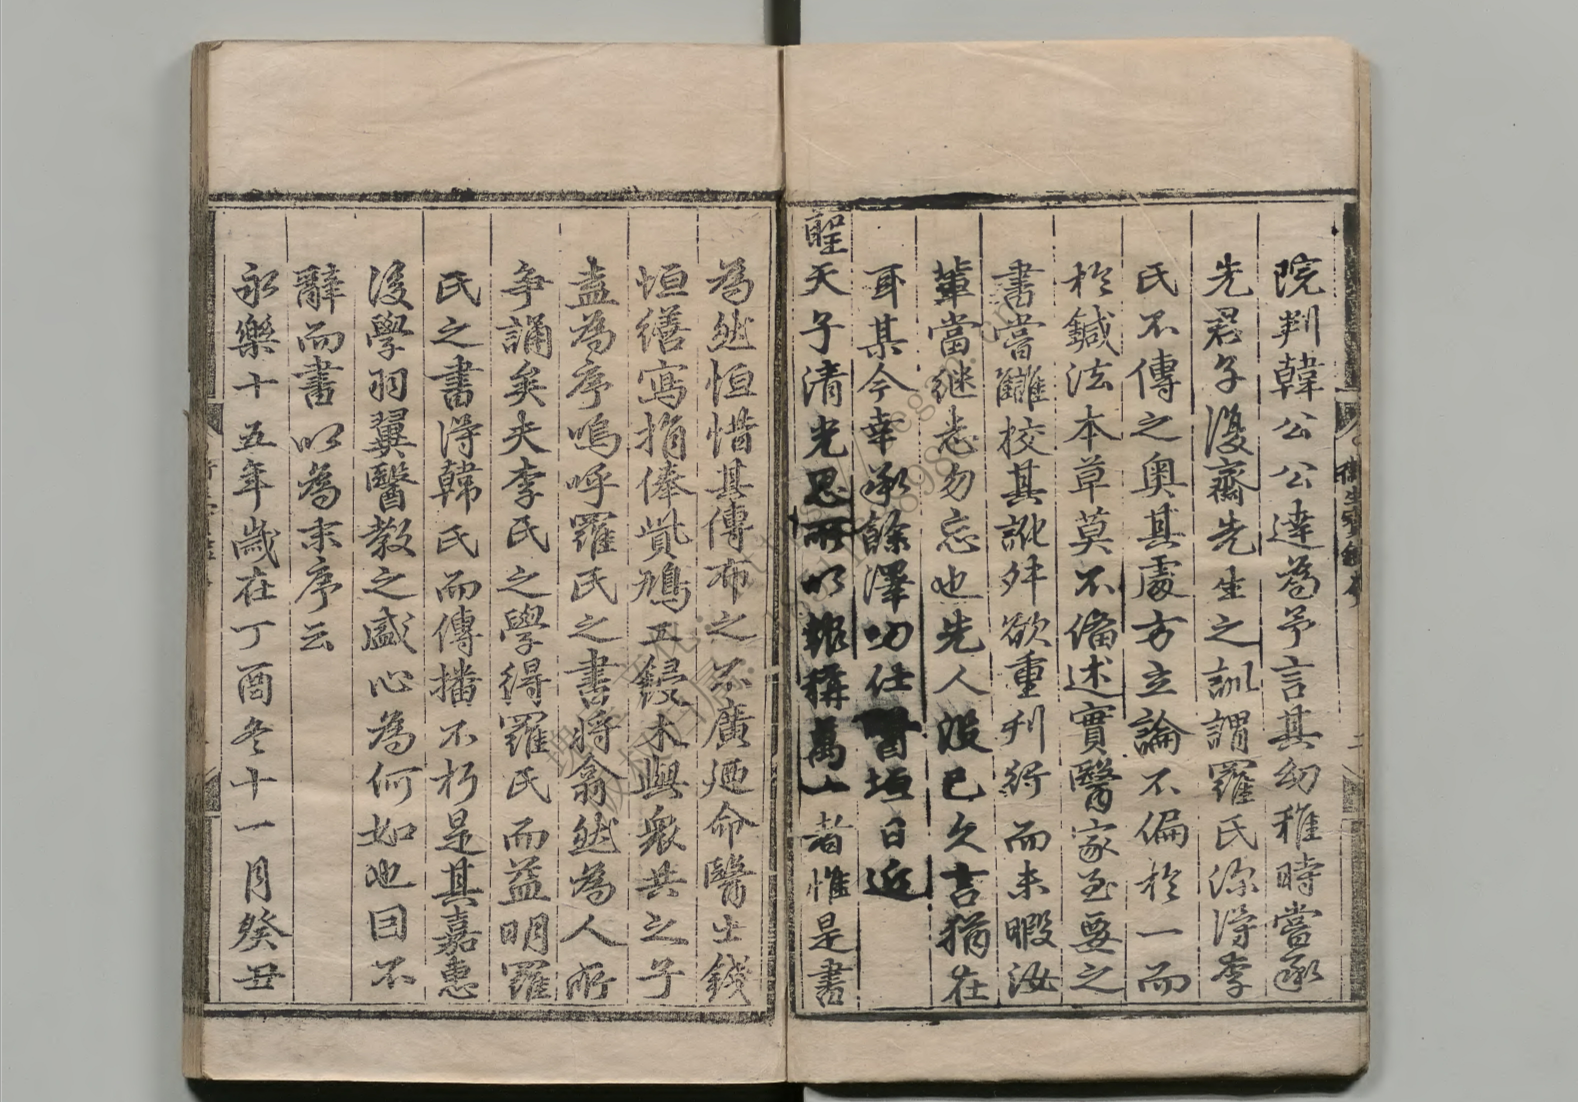 院判韓公公達為予言其幼稚時嘗承
先君子復齋先生之訓謂羅氏深得李
氏不傳之奧其處方立論不偏於一而
於鍼法本草莫不備述實醫家至要之
書嘗讎校其訛舛欲重刋行而未暇汝
輩當継志勿忘也先人没已久言猶在
耳某今幸承餘澤叨仕醫垣日近
聖天子清光思所以報稱萬一者惟是書
為然恒惜其傳布之不廣廼命醫士錢
恒繕寫捐俸貲鳩工鋟木與衆共之子
盍為序嗚呼羅氏之書将翕然為人所
争誦矣夫李氏之學得羅氏而益明羅
氏之書得韓氏而傳播不朽是其嘉惠
後學羽翼醫教之盛心為何如也因不
辭而書以為末序云
永樂十五年歲在丁酉冬十一月癸丑